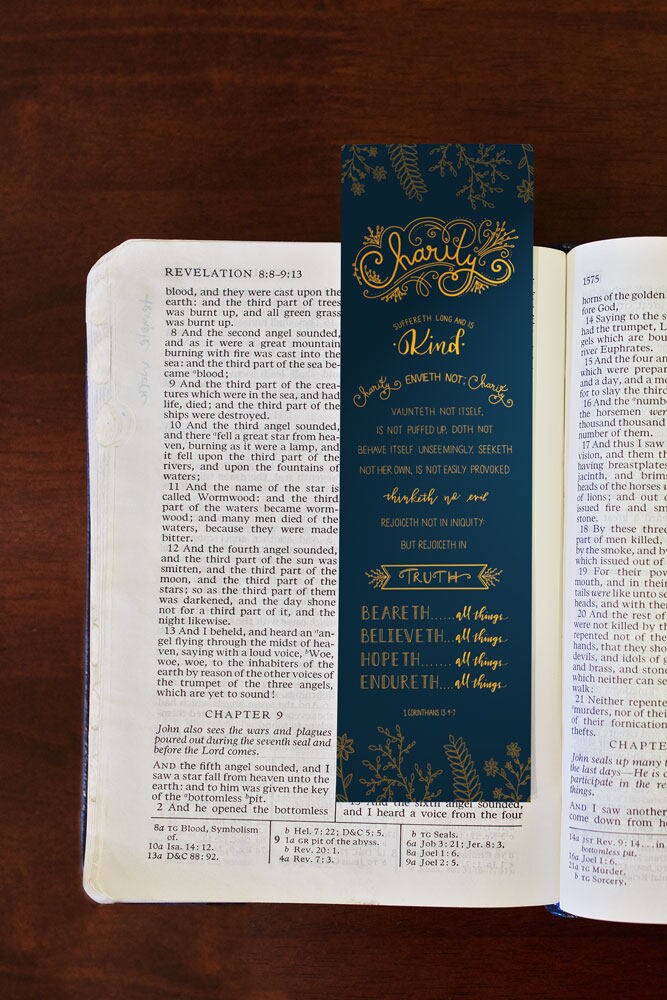 REVELATION 8:8–9:13
blood, and they were cast upon the
earth: and the third part of trees
was burnt up, and all green grass
was burnt up.
8 And the second angel sounded,
and as it were a great mountain
burning with fire was cast into the
sea: and the third part of the sea be-
came ᵃblood;
9 And the third part of the crea-
tures which were in the sea, and had
life, died; and the third part of the
ships were destroyed.
10 And the third angel sounded,
and there ᵃfell a great star from hea-
ven, burning as it were a lamp, and
it fell upon the third part of the
rivers, and upon the fountains of
waters;
11 And the name of the star is
called Wormwood: and the third
part of the waters became worm-
wood; and many men died of the
waters, because they were made
bitter.
12 And the fourth angel sounded,
and the third part of the sun was
smitten, and the third part of the
moon, and the third part of the
stars; so as the third part of them
was darkened, and the day shone
not for a third part of it, and the
night likewise.
13 And I beheld, and heard an ᵃan-
gel flying through the midst of hea-
ven, saying with a loud voice, ᵇWoe,
woe, woe, to the inhabiters of the
earth by reason of the other voices of
the trumpet of the three angels,
which are yet to sound!
CHAPTER 9
John also sees the wars and plagues
poured out during the seventh seal and
before the Lord comes.
AND the fifth angel sounded, and I
saw a star fall from heaven unto the
earth: and to him was given the key
of the ᵃbottomless ᵇpit.
2 And he opened the bottomless
13 And the sixth angel sounded,
and I heard a voice from the four
8a TG Blood, Symbolism
of.
10a Isa. 14:12.
13a D&C 88:92.
b Hel. 7:22; D&C 5:5.
9 1a GR pit of the abyss.
b Rev. 20:1.
4a Rev. 7:3.
b TG Seals.
6a Job 3:21; Jer. 8:3.
8a Joel 1:6.
9a Joel 2:5.
Charity
SUFFERETH LONG AND IS
Kind
Charity ENVIETH NOT; Charity
VAUNTETH NOT ITSELF,
IS NOT PUFFED UP, DOTH NOT
BEHAVE ITSELF UNSEEMINGLY, SEEKETH
NOT HER OWN, IS NOT EASILY PROVOKED
thinketh no evil
REJOICETH NOT IN INIQUITY
BUT REJOICETH IN
TRUTH
BEARETH.....all things
BELIEVETH...all things
HOPETH.......all things
ENDURETH....all things
1 CORINTHIANS 13:4-7
1575
horns of the golden
fore God,
14 Saying to the s
had the trumpet, L
gels which are bou
river Euphrates.
15 And the four an
which were prepar
and a day, and a m
for to slay the third
16 And the ᵃnumbe
the horsemen were
thousand thousand
number of them.
17 And thus I saw
vision, and them th
having breastplates
jacinth, and brims
heads of the horses w
of lions; and out o
issued fire and sm
stone.
18 By these three
part of men killed,
by the smoke, and by
which issued out of
19 For their pow
mouth, and in their
tails were like unto se
heads, and with the
20 And the rest of
were not killed by th
repented not of the
hands, that they sho
devils, and idols of g
and brass, and stone
which neither can se
walk:
21 Neither repente
ᵃmurders, nor of their
of their fornication
thefts.
CHAPTE
John seals up many t
the last days—He is c
participate in the res
things.
AND I saw another
come down from h
14a JST Rev. 9:14 ... in
bottomless pit.
16a Joel 1:6.
21a TG Murder.
b TG Sorcery.